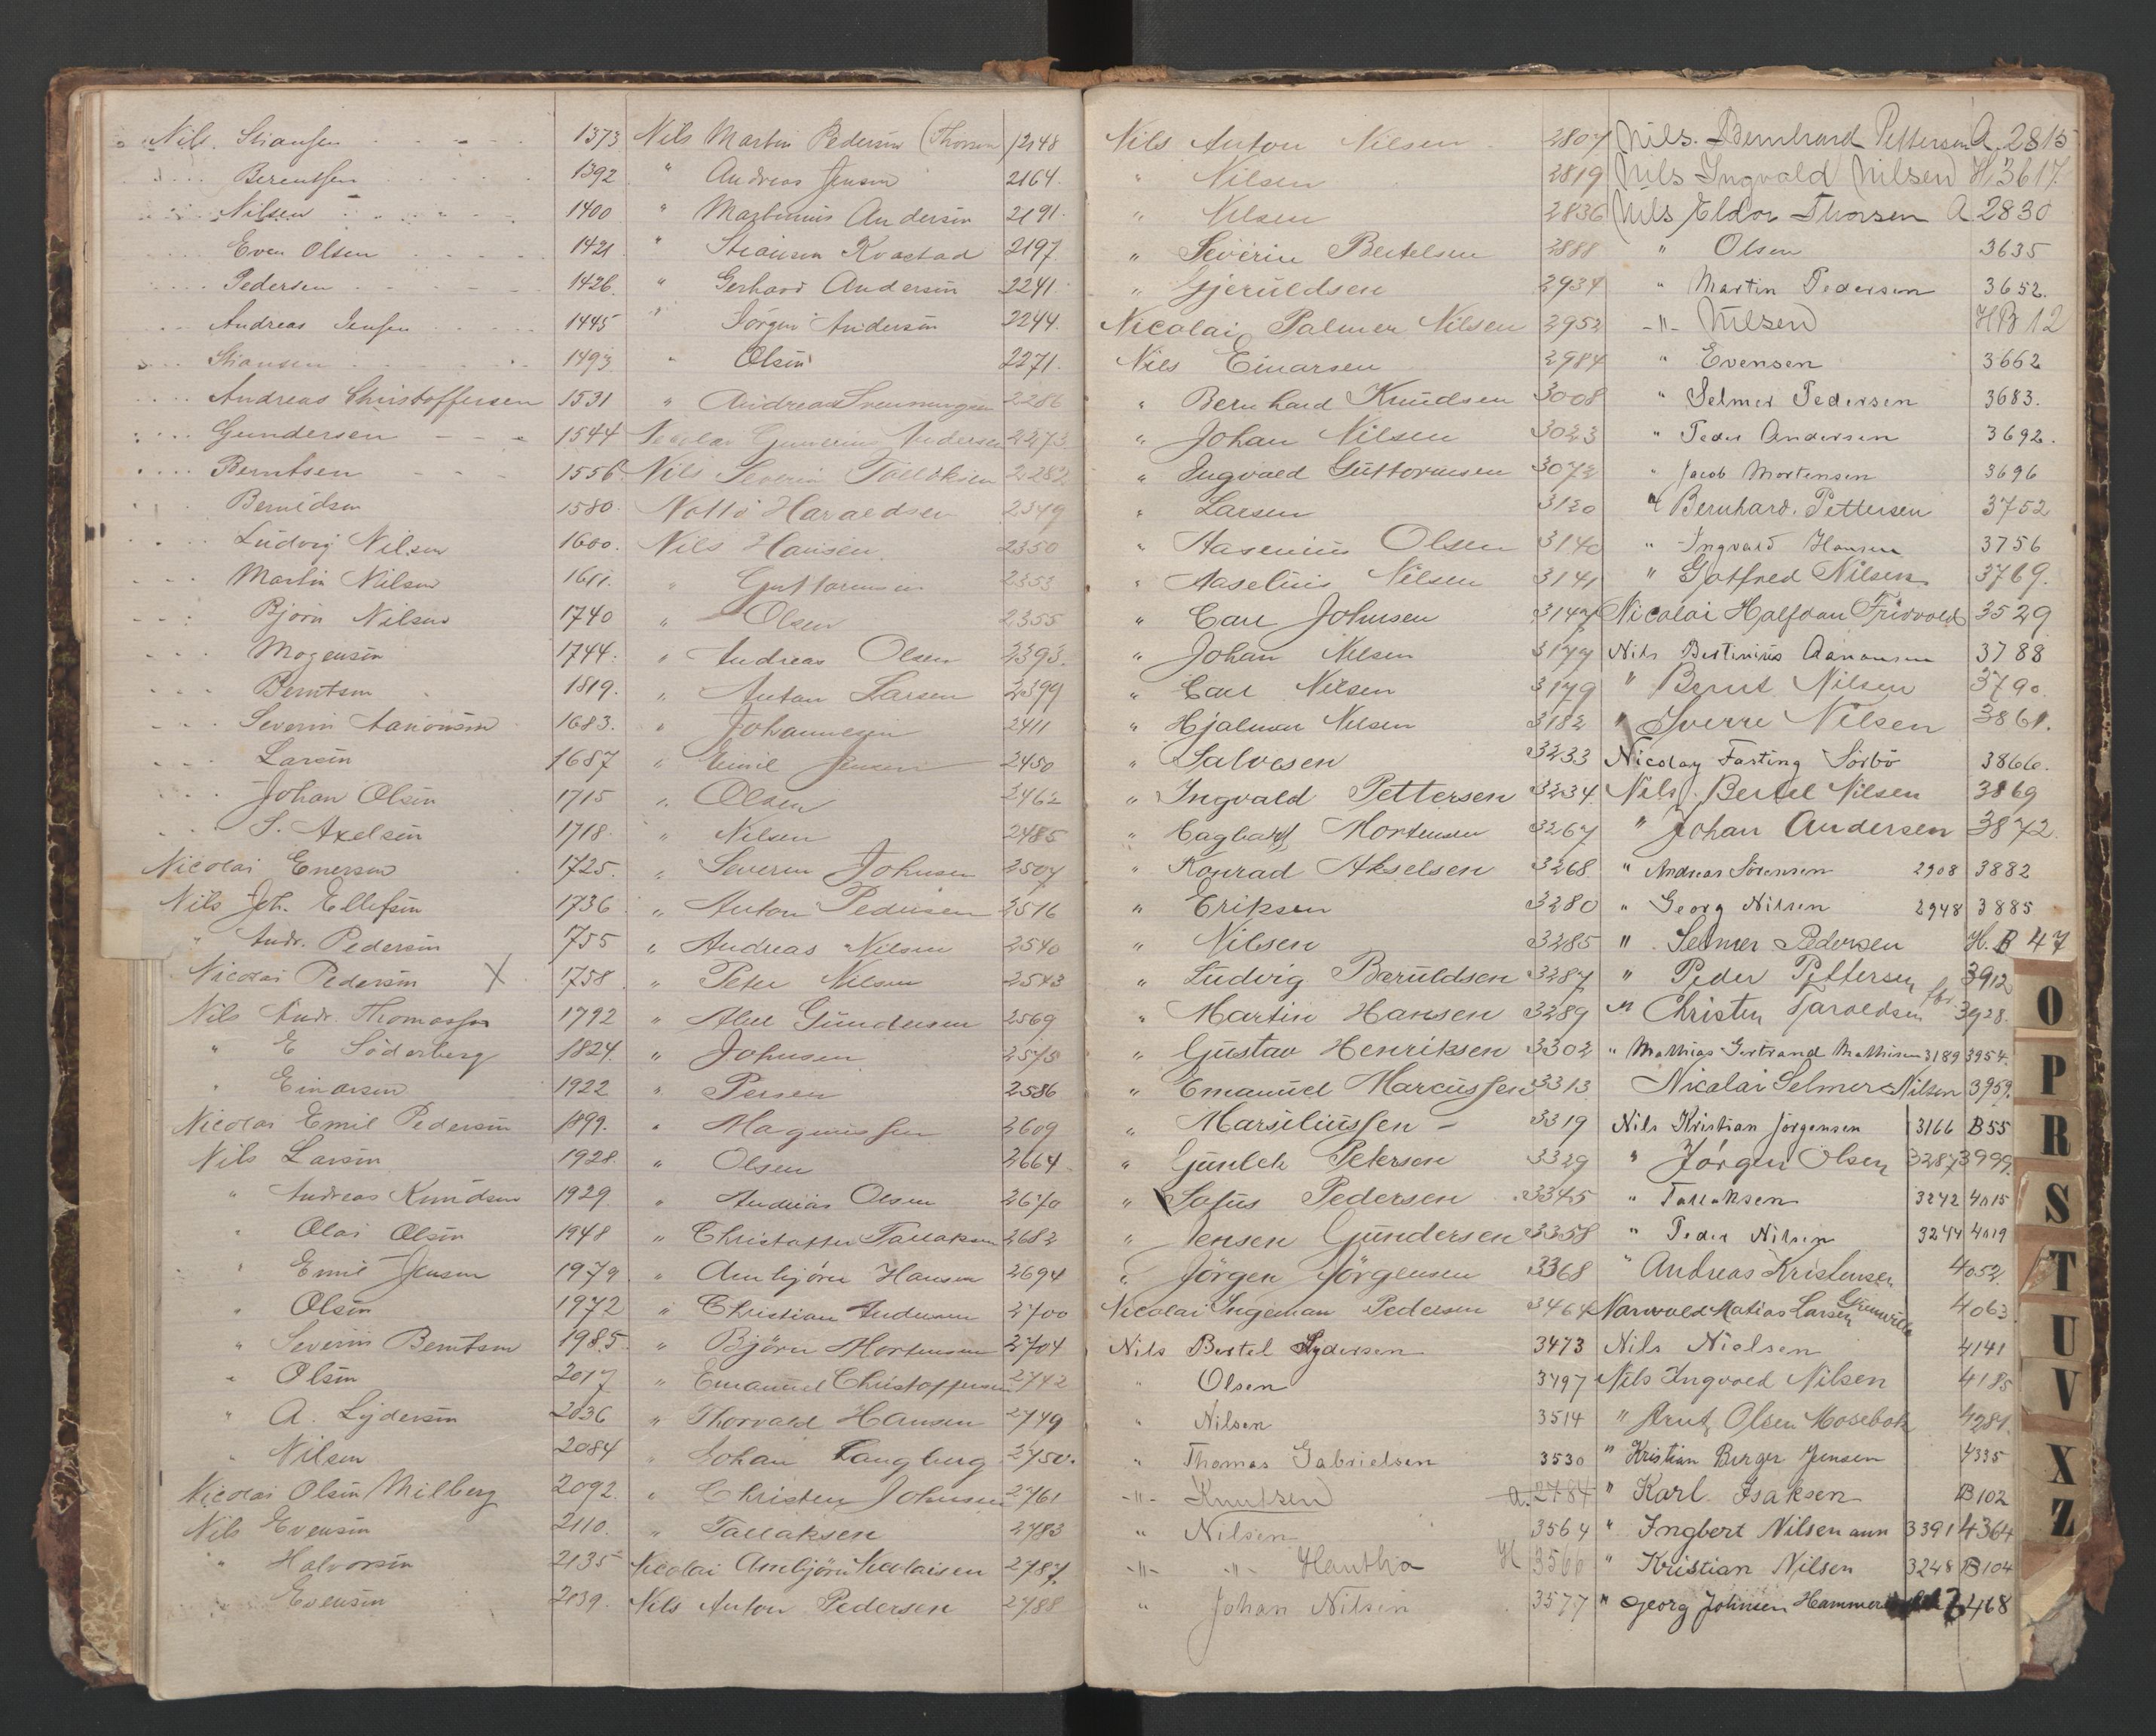 Nils Stiansen 1373
Berentsen 1392
Nilsen 1400
Even Olsen 1421
Pedersen 1426.
Andreas Jensen 1445
Stiansen 1493
Andreas Christoffersen 1531
Gundersen 1544
Berntsen 1556
1580.
Ludvig Nilsen 1600.
Martin Nilsen 1611.
Bjørn Nilsen 1740
Mogensen 1744.
Berntsen 1819.
Severin Aanonsen 1683.
Larsen 1687
Johan Olsen 1715
S. Axelsen 1718.
Nicolai Enersen 1725.
Nils Joh. Ellefsen 1736
" Andr. Pedersen 1755
Nicolai Pedersen X 1758
Nils Andr. Thomassen 1792
" E Söderberg 1824.
" Einarsen 1922
Nicolai Emil Pedersen 1899.
Nils Larsen 1928.
" Andreas Knudsen 1929.
" Olai Olsen 1948
" Emil Jensen 1979
" Olsen 1972
" Severin Berntsen 1985.
" Olsen 2017
" A. Lydersen 2036
" Nilsen 2084
Nicolai Olsen Milberg 2092.
Nils Evensen 2110.
" Halvorsen 2135
" Evensen 2139.
Nils Martin Pedersen (Thorsen) 2148
" Andreas Jensen 2164.
" Martinius Andersen 2191.
" Stiansen Kvastad 2197.
" Gerhard Andersen 2241
" Jørgen Andersen 2244.
" Olsen 2271.
" Andreas 2286
Andersen 2273
Nils Severin Tallaksen 2282
Haraldsen 2349
Nils Hansen 2350
" Guttormsen 2353
" Olsen 2355
" Andreas Olsen 2393.
" Anton Larsen 2399
" Johannesen 2411
" Emil Jensen 2450
" Olsen 2462
" Nilsen 2485
" Severin Johnsen 2507
" Anton Pedersen 2516
" Andreas Nilsen 2540
" Peter Nilsen 2543
" Gundersen 2569
" Johnsen 2575
" Persen 2586
" Magnussen 2609
" Olsen 2664
" Andreas Olsen 2670
" Christoffer Tallaksen 2682
" Arnbjörn Hansen 2694
" Christian Andersen 2700
" Björn Mortensen 2704
" Emanuel Christoffersen 2742
" Thorvald Hansen 2749
" Johan Langberg 2750.
" Christen Johnsen 2761
" Tallaksen 2783
Nicolai Arnbjörn Nicolaisen 2787.
Nils Anton Pedersen 2788
Nils Anton Nilsen 2807
" Nilsen 2819
" Nilsen 2836
" Severin Bertelsen 2888
" Gjeruldsen 2934
Nicolai Palmer Nilsen 2952
Nils Einarsen 2984
" Bernhard Knudsen 3008
" Johan Nilsen 3023
" Ingvald Guttormsen 3072
" Larsen 3120
" Aasenius Olsen 3140
" Aaselius Nilsen 3141
" Carl Johnsen 3147
" Johan Nilsen 3177
" Carl Nilsen 3179
" Hjalmar Nilsen 3182
" Salvesen 3233
" Ingvald Pettersen 3234
" Mortensen 3267
" Konrad Akselsen 3268
" Eriksen 3280
" Nilsen 3285
" Ludvig Bæruldsen 3287
" Martin Hansen 3289
" Gustav Henriksen 3302
" Emanuel Marcussen 3313
" Marsiliussen - 3319
" Gunleik Petersen 3329
" Sofus Pedersen 3345
" Jensen Gundersen 3358
" Jörgen Jörgensen 3368
Nicolai Ingeman Pedersen 3464
Nils Bertel Lydersen 3473
" Olsen 3497
" Nilsen 3514
" Thomas Gabrielsen 3530
-"- Knutsen a. 2784
" Nilsen 3564
-"- -"- Hantho H 3566
" Johan Nilsen 3577
Nils. Bernhard Pettersen A. 2815
Nils Ingvald Nilsen H. 3617
Nils Eldor Thorsen A 2830
" Olsen 3635
" Martin Pedersen 3652.
-"- Nilsen HB 12
" Evensen 3662
" Selmer Pedersen 3683.
" Peder Andersen 3692.
" Jacob Mortensen 3696
" Bernhard. Pettersen 3752
" Ingvald Hansen 3756
" Gotfred Nilsen 3769.
Nicolai Halfdan Fridvold 3529
Nils Bertinius Aanonsen 3788
" Bernt Nilsen 3790.
" Sverre Nilsen 3861.
Nicolay Farting Sörbö 3866.
Nils. Bertel Nilsen 3869
" Johan Andersen 3872.
" Andreas Sörensen 2908 3882
" Georg Nilsen 2948 3885
" Selmer Pedersen H. B 47
" Peder Pettersen 3912
" Christen Taraldsen 3928.
" Mathias Gertrand Mathisen 3189 3954.
Nicolai Selmer Nilsen 3959.
Nils Kristian Jörgensen 3166 B55
" Jörgen Olsen 3287 3999.
" Tallaksen 3242 4015
" Peder Nilsen 3244 4019
" Andreas Kristensen 4052.
Narvald Matias Larsen 4063
Nils Nielsen 4141
Nils Ingvald Nilsen 4185
" Arnt Olsen Mosebok 4284.
" Kristian Birger Jensen 4335
" Karl. Isaksen B102
" Ingbert Nilsen 3391 4364
" Kristian Nilsen 3248 B104
" Georg Johnsen Hammer 4468
O
P
R
S
T
U
V
X
Z